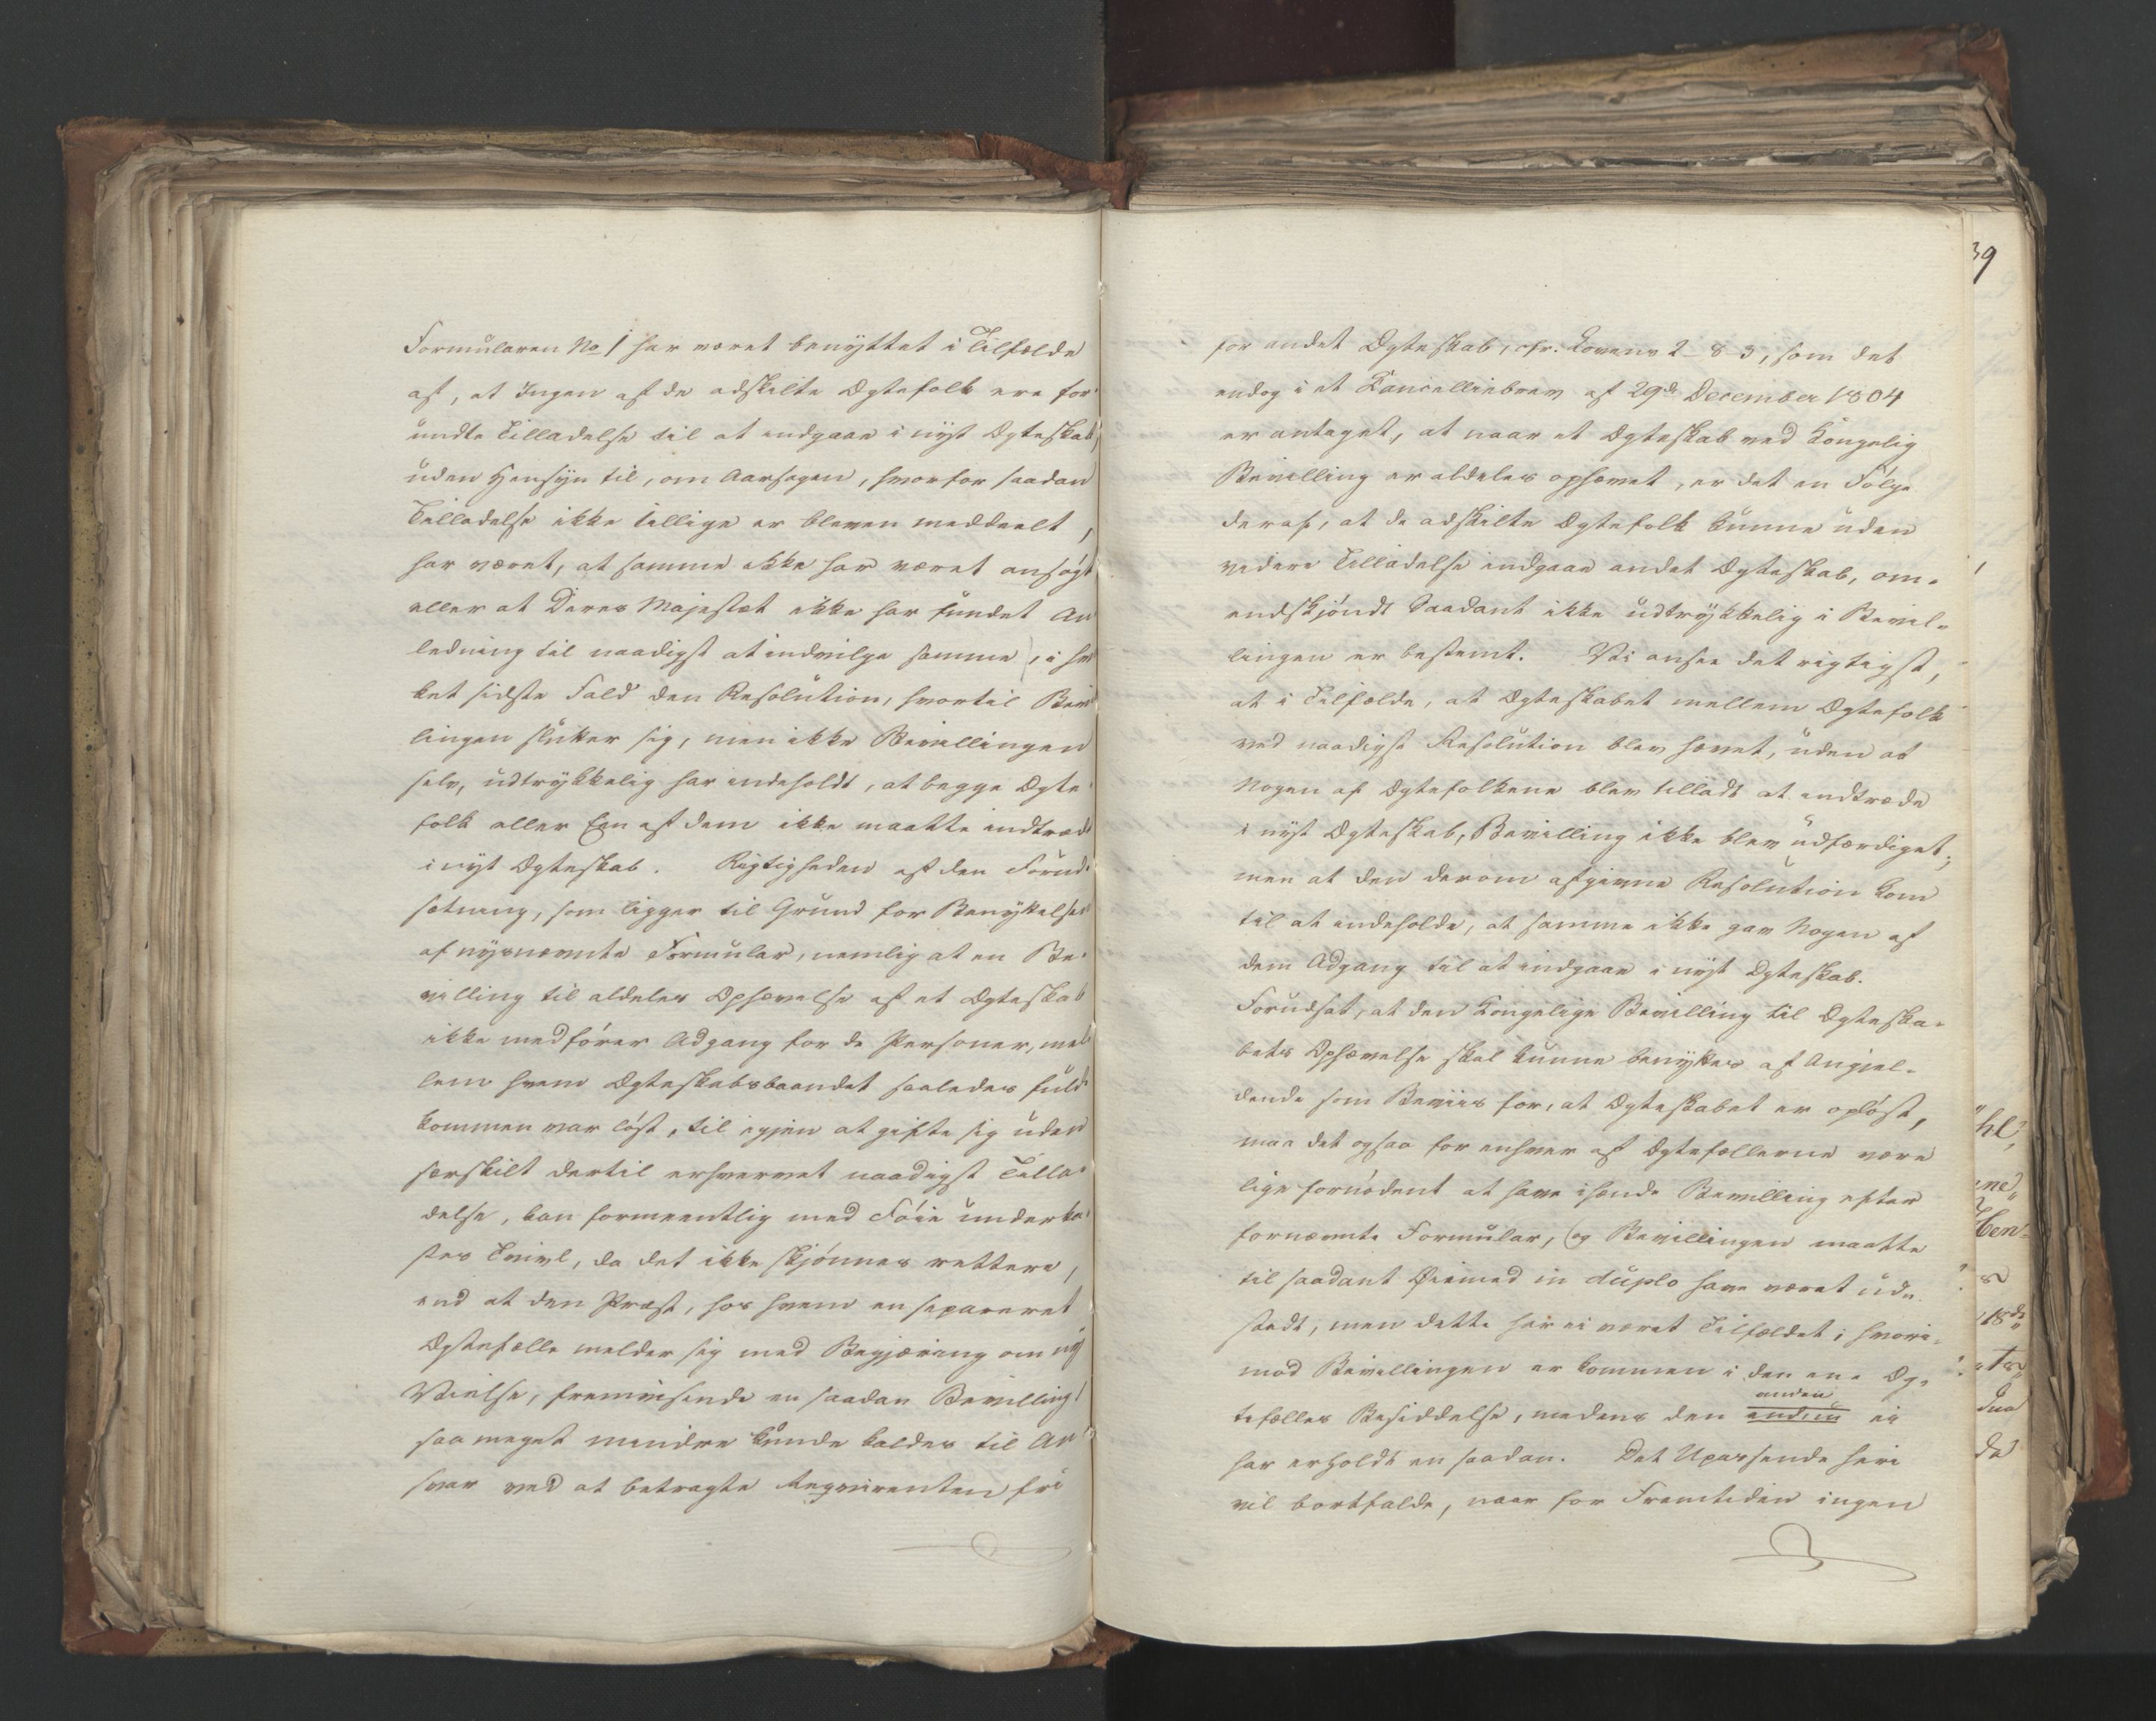 Formularen No 1 har været benyttet i Tilfælde
af, at Ingen af de adskilte Ægtefolk ere for-
undte Tilladelse til at indgaae i nyt Ægteskab,
uden Hensyn til, om Aarsagen, hvorfor saadan
Tilladelse ikke tillige er bleven meddeelt,
har været, at samme ikke har været ansøgt
eller at Deres Majestæt ikke har fundet An
ledning til naadigst at indvilge samme, i hvil
ket sidste Fald den Resolution, hvortil Bevil
lingen slutter sig, men ikke Bevillingen
selv, udtrykkelig har indeholdt, at begge Ægte-
folk eller Een af dem ikke maatte indtræde
i nyt Ægteskab. Rigtigheden af den Forud-
sætning, som ligger til Grund for Benyttelsen
af nysnævnte Formular, nemlig at en Be-
villing til aldeles Ophævelse af et Ægteskab
ikke medfører Adgang for de Personer, mel-
lem hvem Ægteskabsbaandet saaledes fuld-
kommen var løst, til igjen at gifte sig uden
særskilt dertil erhvervet naadigst Tilla-
delse, kan formeentlig med Føie underka-
stes Tvivl, da det ikke skjønnes rettere,
end at den Præst, hos hvem en separeret
Ægtefælle melder sig med Begjæring om ny
Vielse, fremvisende en saadan Bevilling,
saa meget mindre kunde kaldes til An
svar ved at betragte Reqvirenten fri
39
for andet Ægteskab, cfr. Lovens 2-8-3, som det
endog i et Cancelliebrev af 29de December 1804
er antaget, at naar et Ægteskab ved Kongelig
Bevilling er aldeles ophævet, er det en Følge
deraf, at de adskilte Ægtefolk kunne uden
videre Tilladelse indgaae andet Ægteskab, om-
endskjøndt Saadant ikke udtrykkelig i Bevil-
lingen er bestemt. Vi ansee det rigtigst,
at i Tilfælde, at Ægteskabet mellem Ægtefolk
ved naadigst Resolution blev hævet, uden at
Nogen af Ægtefolkene blev tilladt at indtræde
i nyt Ægteskab, Bevilling ikke blev udfærdiget,
men at den derom afgivne Resolution kom
til at indeholde, at samme ikke gav Nogen af
dem Adgang til at indgaae i nyt Ægteskab.
Forudsat, at den Kongelige Bevilling til Ægteska-
bets Ophævelse skal kunne benyttes af Angjel-
dende som Beviis for, at Ægteskabet er opløst,
maa det ogsaa for enhver af Ægtefællerne være
lige fornødent at have ihænde Bevilling efter
fornævnte Formular, og Bevillingen maatte
til saadant Øiemed in duplo have været ud-
stedt, men dette har ei været Tilfældet, hvori-
mod Bevillingen er kommen i den ene Æg-
tefælles Besiddelse, medens den anden ei
har erholdt en saadan. Det Upassende heri
vil bortfalde, naar for Fremtiden ingen